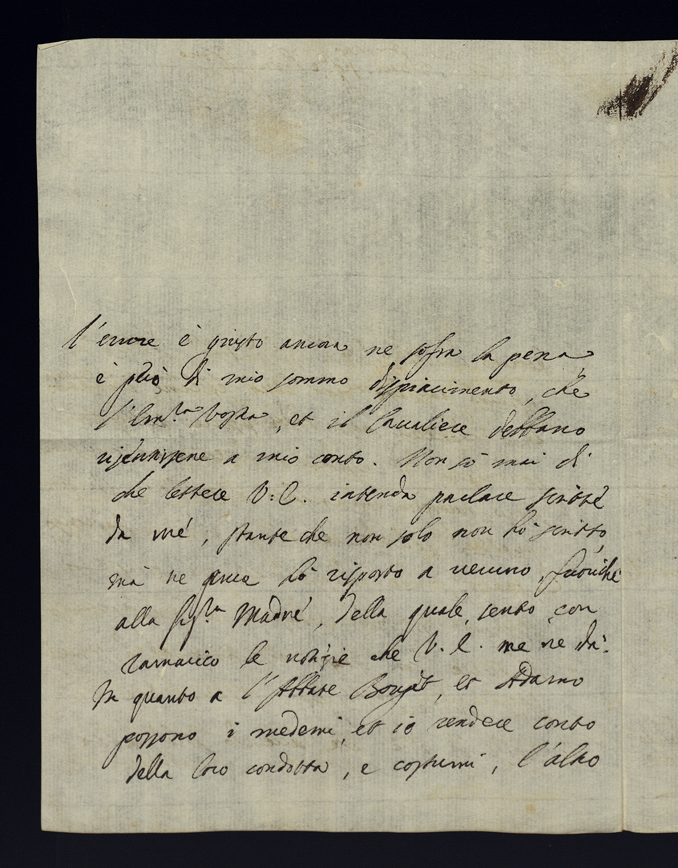 l'errore è giusto ancora ne sofra la pena
è può di mio sommo dispiacimento che
l'Em.za Vostra, et il Cavaliere debbano
a mio conto. Non sò mai di
che lettere V: E. intenda parlare scritte
da mé, stante che non solo non hò scritto,
mà ne pure hò risposto a veruno, fuoriche
alla Sig.ra Madre, della quale sento con
ramarico le notizie che V. E. me ne dà:
In quanto a l'Abbate et Adamo
possono i medemi, et io rendere conto
della loro condotta, e costumi, l'altro